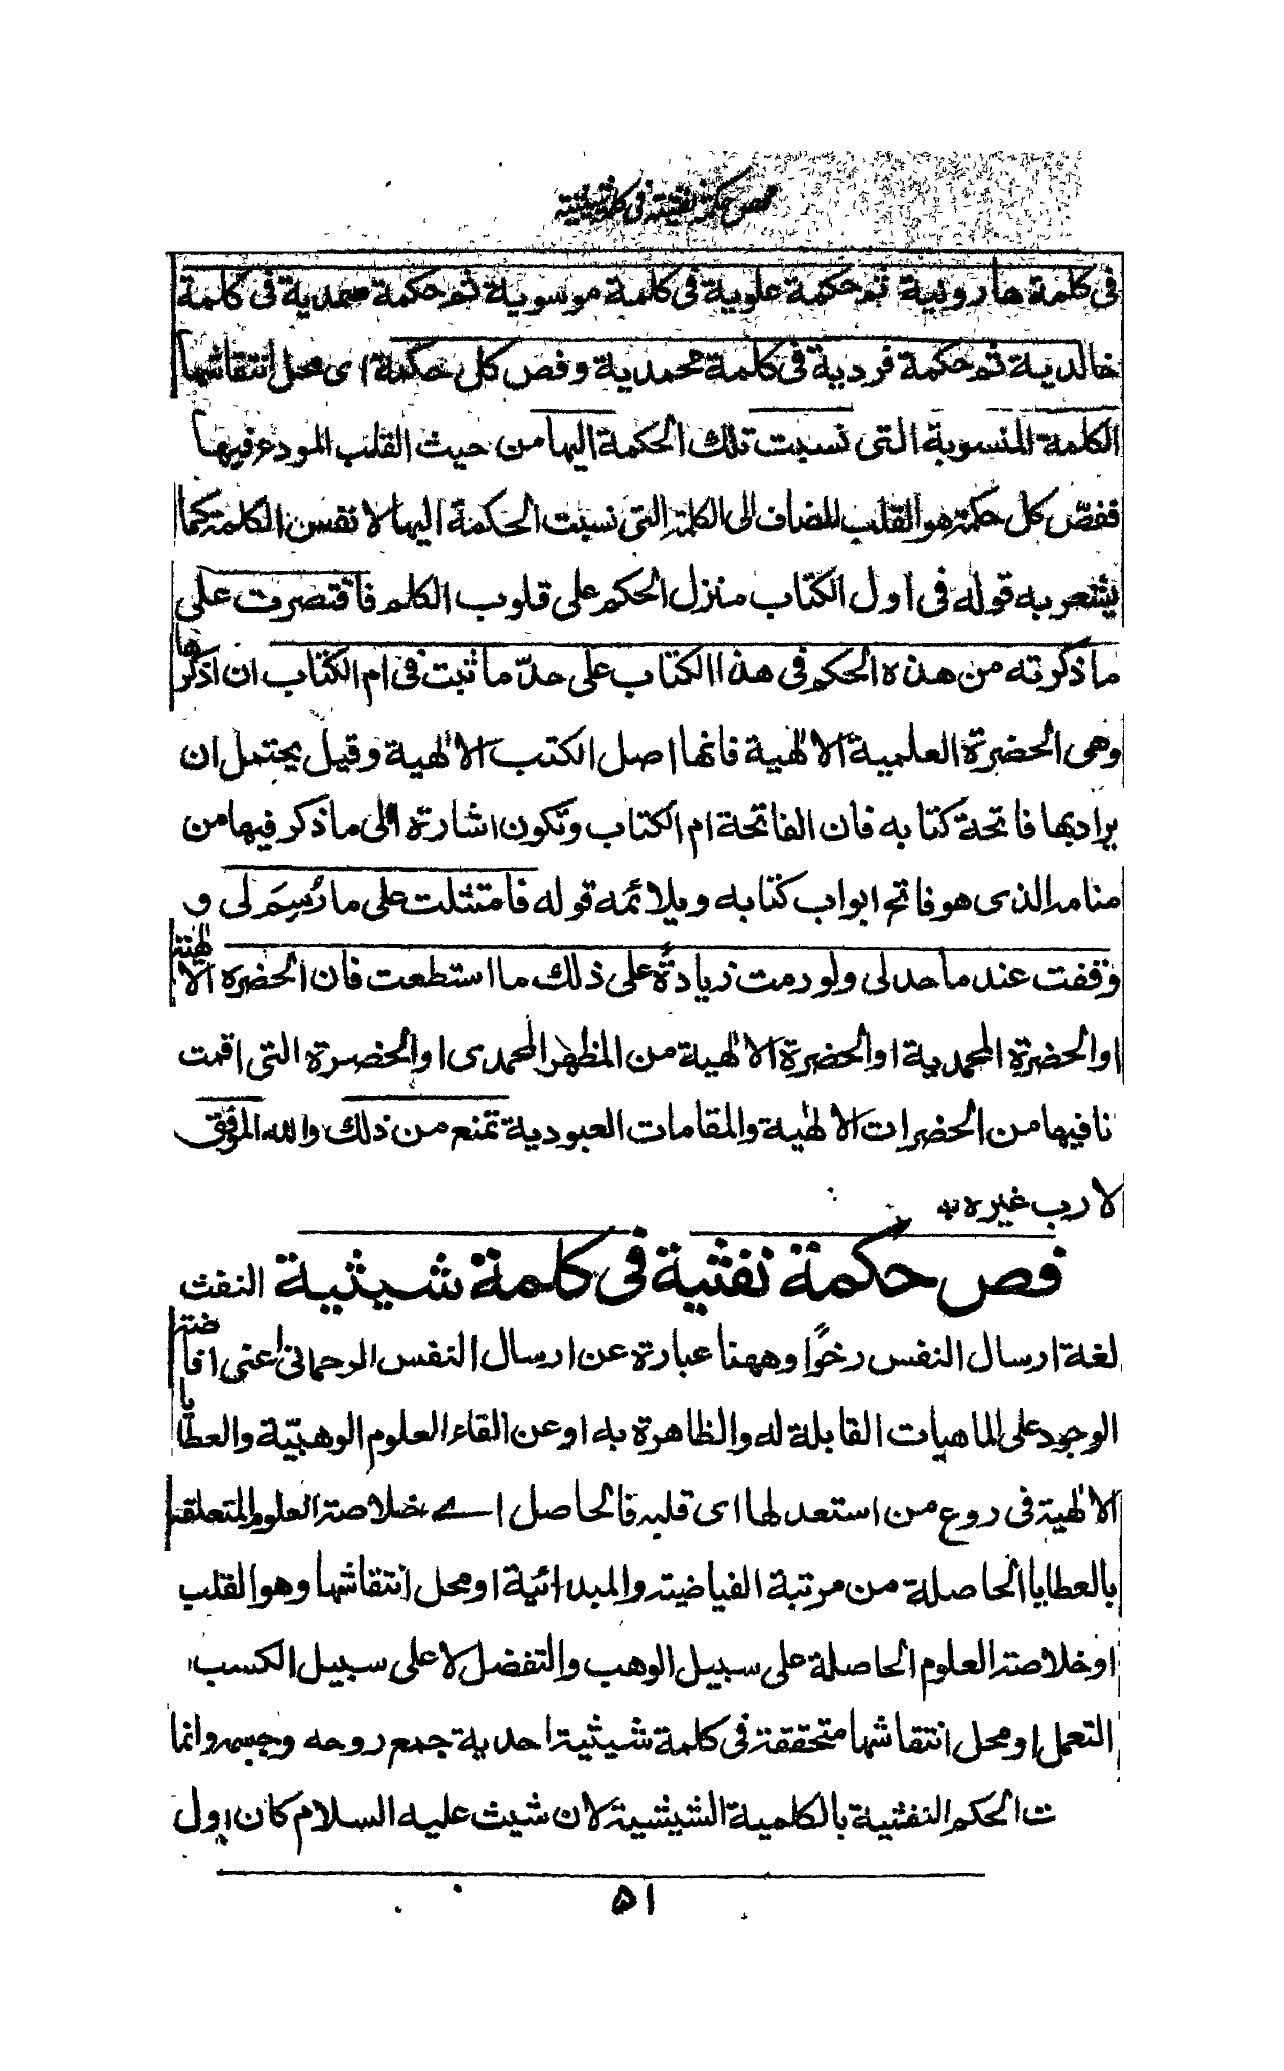 فص حكمة نفثية فى كلمة شيثية
فى كلمة هارونية ثم حكمة علوية فى كلمة موسوية ثم حكمة صمدية فى كلمة
خالدية ثم حكمة فردية فى كلمة محمدية وفص كل حكمة اى محل انتقاشها
الكلمة المنسوبة التى نسبت تلك الحكمة اليها من حيث القلب المودع فيها
ففصّ كل حكمة هو القلب المضاف الى الكلمة التى نسبت الحكمة اليها لا نفس الكلمة كما
يشعر به قوله فى اول الكتاب منزل الحكم على قلوب الكلم فاقتصرت على
ما ذكرته من هذه الحكم فى هذا الكتاب على حدّ ما ثبت فى ام الكتاب ان اذكرها
وهى الحضرة العلمية الالٰهية فانها اصل الكتب الالٰهية وقيل يحتمل ان
يراد بها فاتحة كتابه فان الفاتحة ام الكتاب وتكون اشارة الى ما ذكر فيها من
منامه الذى هو فاتح ابواب كتابه ويلائمه قوله فامتثلت على ما رُسِمَ لى و
وقفت عند ما حد لى ولو رمت زيادةً على ذلك ما استطعت فان الحضرة الالٰهية
او الحضرة المحمدية او الحضرة الالٰهية من المظهر المحمدى او الحضرة التى اقمت
نا فيها من الحضرات الالٰهية والمقامات العبودية تمنع من ذلك والله الموفق
لا رب غيره
فص حكمة نفثية فى كلمة شيثية النفث
لغة ارسال النفس رخوًا وههنا عبارة عن ارسال النفس الرحمانى اعنى افاضة
الوجود على الماهيات القابلة له والظاهرة به او عن القاء العلوم الوهبيّة والعطايا
الالٰهية فى روع من استعد لها اى قلبه فالحاصل اے خلاصة العلوم المتعلقة
بالعطايا الحاصلة من مرتبة الفياضية والمبدائية او محل انتقاشها وهو القلب
او خلاصة العلوم الحاصلة على سبيل الوهب والتفضل لا على سبيل الكسب
التعمل او محل انتقاشها متحققة فى كلمة شيثية احدية جمع روحه وجسمه وانما
ت الحكم النفثية بالكلمية الشيشية لان شيث عليه السلام كان اول
٥١